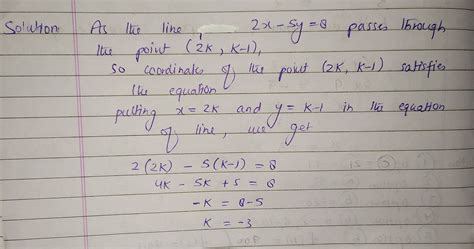 Solution: As the line 2x - 5y = 8 passes through
the point (2K, K-1),
so coordinates of the point (2K, K-1) satisfies
the equation
putting x = 2K and y = K-1 in the equation
of line, we get
2(2K) - 5(K-1) = 8
4K - 5K + 5 = 8
-K = 8-5
K = -3